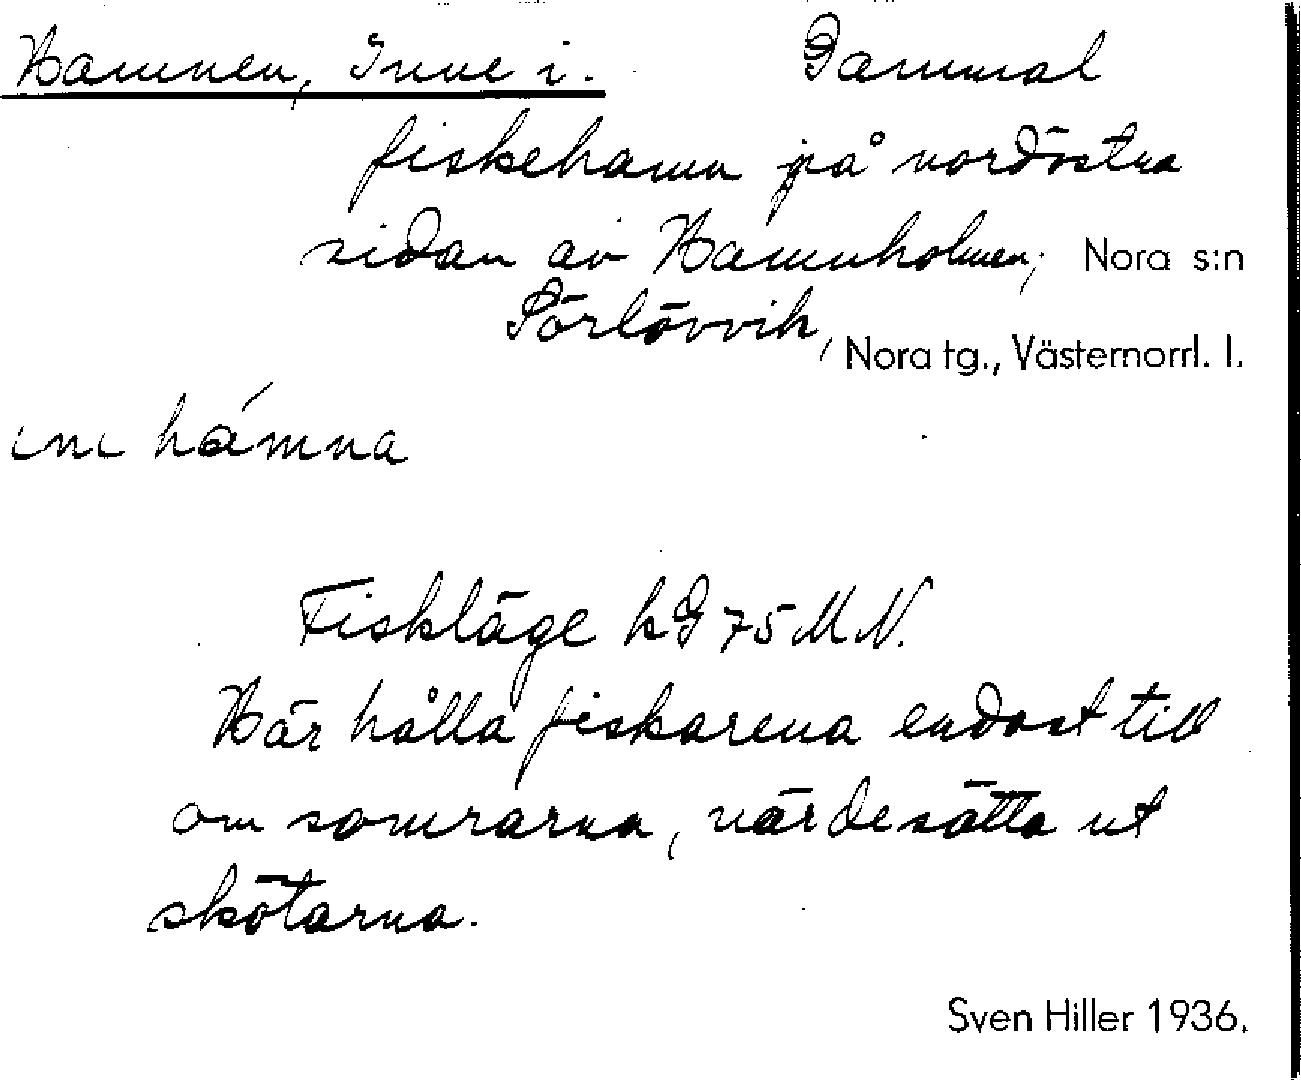 Hamnen, Inne i. Gammal
fiskehamn på nordöstra
sidan av Hamnholmen; Nora s:n
Sörlövvik, Nora tg., Västernorrl. l.
ını hámna
Fiskläge kG 75 M N.
Här hålla fiskarena endast till
om somrarna, när de sätta ut
skötarna.
Sven Hiller 1936.